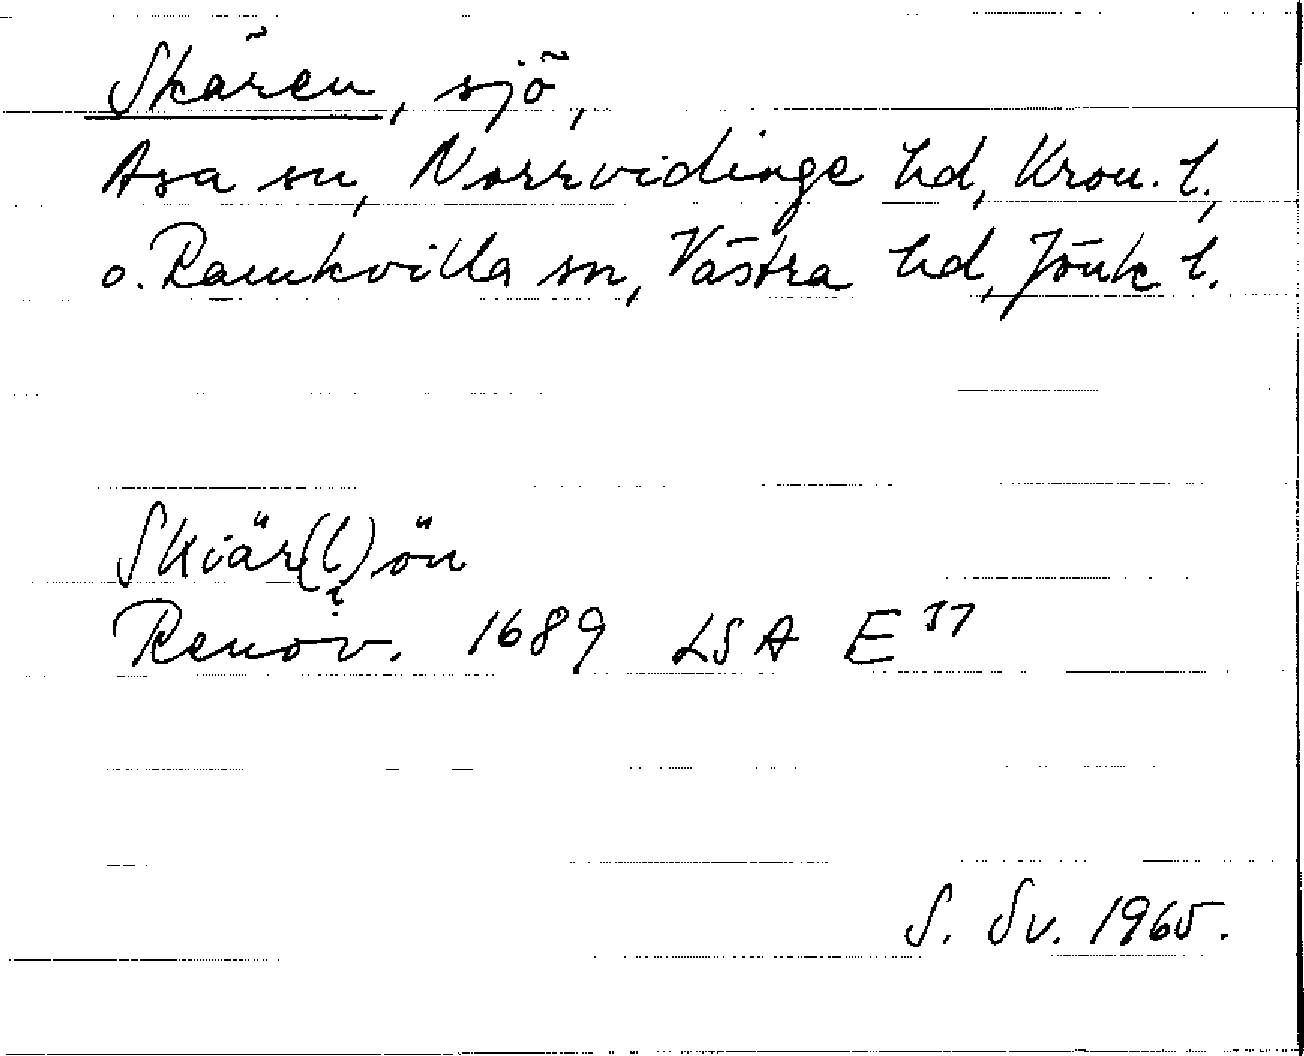 Skären, sjö,
Asa sn, Norrvidinge hd, Kron. l.,
o. Ramkvilla sn, Västra hd, Jönk l.
Skiär(l)ön
Renov. 1689 LSA E 37
S. Sv. 1965.